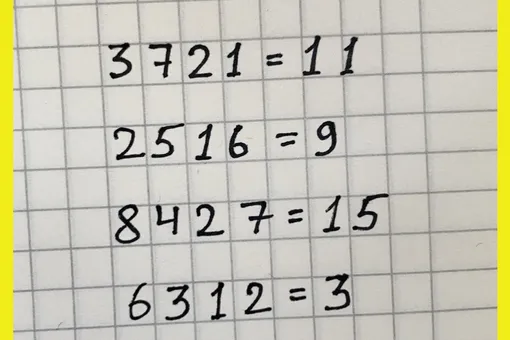 3721=11
2516=9
8427=15
6312=3